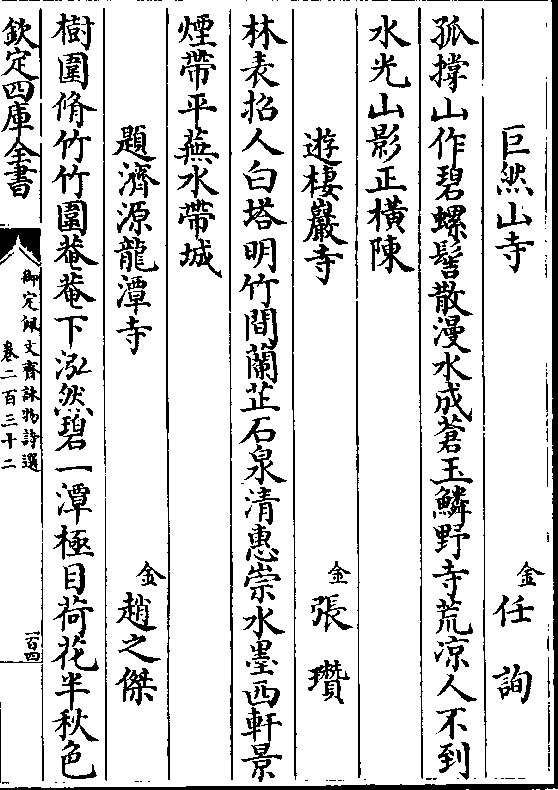 巨然山寺 金任詢
孤撐山作碧螺髻散漫水成蒼玉鱗野寺荒凉人不到
水光山影正橫陳
遊棲巖寺 金張瓚
林表招人白塔明竹間蘭芷石泉清惠崇水墨西軒景
煙帶平蕪水帶城
題濟源龍潭寺 金趙之傑
樹圍脩竹竹圍菴菴下泓然碧一潭極目荷花半秋色
欽定四庫全書
御定佩文齋詠物詩選
卷二百三十二
一百四